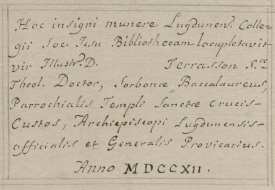 Hoc insigni munere Lugdunens. Colle-
gii Soc. Jesu Bibliothecam locupletavit
vir Illustr. D. Terrasson S.ræ
Theol. Doctor, Sorbonæ Baccalaureus,
Parrochialis Templi Sanctæ Crucis
Custos, Archiepiscopi Lugdunensis
officialis et Generalis Provicarius.
Anno MDCCXII.